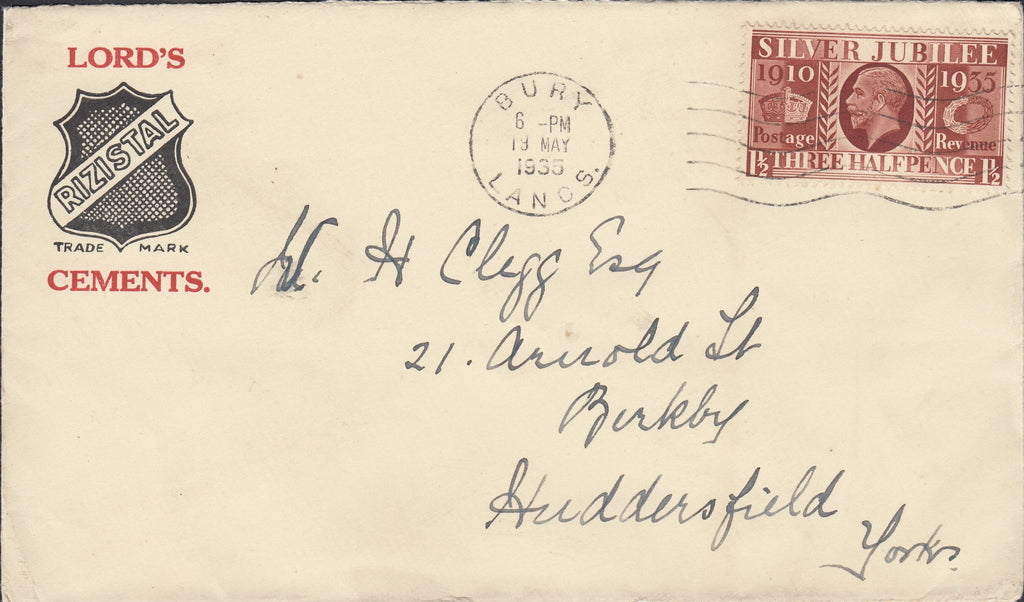 LORD'S
RIZISTAL
TRADE MARK
CEMENTS.
BURY
6 -PM
19 MAY
1935
LANCS.
SILVER JUBILEE
1910 1935
Postage Revenue
1½ THREE HALFPENCE 1½
W. H Clegg Esq
21. Arnold St
Birkby
Huddersfield
Yorks